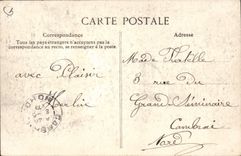 CARTE POSTALE
Correspondance
Tous les pays étrangers n'acceptent pas la
correspondance au recto, se renseigner à la poste.
Adresse
avec Plaisir
Made
3 rue du
Grand Séminaire
Cambrai
Nord